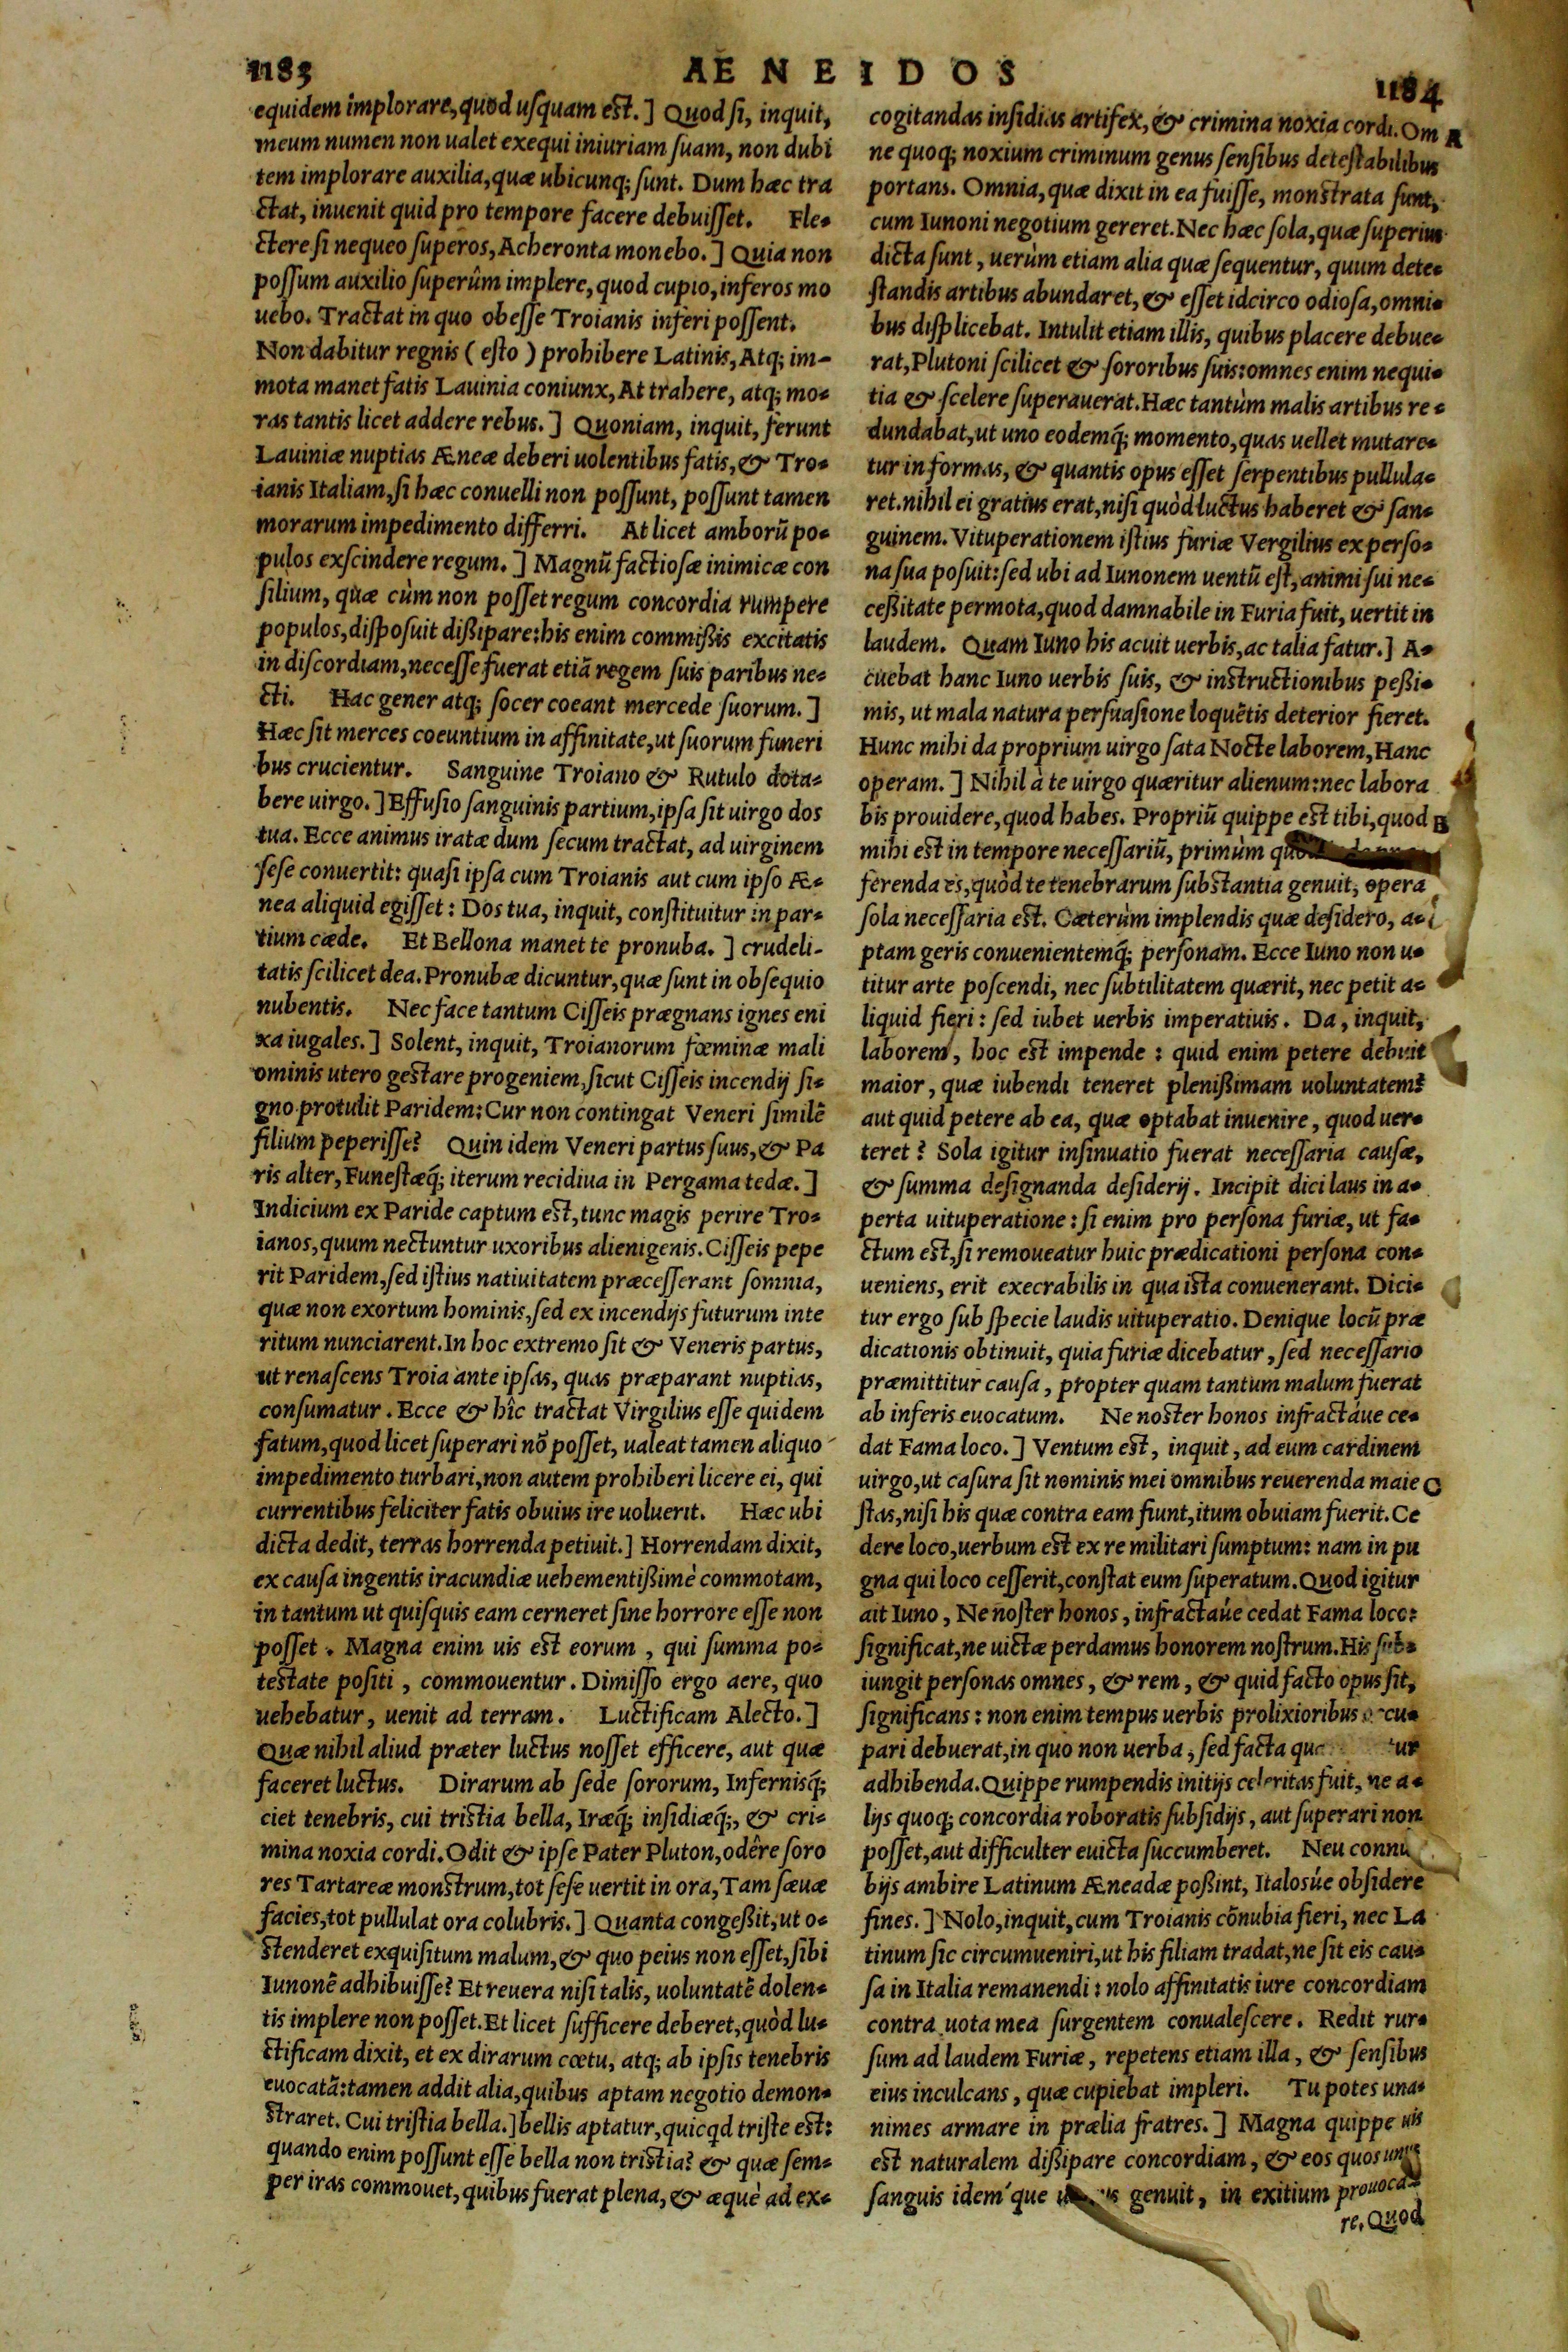 1183
AENEIDOS
1184
equidem implorare, quod uſquam est.] Quod ſi, inquit,
meum numen non ualet exequi iniuriam ſuam, non dubi
tem implorare auxilia, quæ ubicunq; ſunt. Dum hæc tra
ctat, inuenit quid pro tempore facere debuiſſet. Fle-
ctere ſi nequeo ſuperos, Acheronta monebo.] Quia non
poſſum auxilio ſuperûm implere, quod cupio, inferos mo
uebo. Tractat in quo obeſſe Troianis inferi poſſent.
Non dabitur regnis (eſto) prohibere Latinis, Atq; im-
mota manet fatis Lauinia coniunx, At trahere, atq; mo-
ras tantis licet addere rebus.] Quoniam, inquit, ferunt
Lauiniæ nuptias Æneæ deberi uolentibus fatis, & Tro-
ianis Italiam, ſi hæc conuelli non poſſunt, poſſunt tamen
morarum impedimento differri. At licet amborũ po-
pulos exſcindere regum.] Magnũ factioſæ inimicæ con
ſilium, quæ cùm non poſſet regum concordia rumpere
populos, diſpoſuit dißipare: his enim commißis excitatis
in diſcordiam, neceſſe fuerat etiã regem ſuis paribus ne-
cti. Hac gener atq; ſocer coeant mercede ſuorum.]
Hæc ſit merces coeuntium in affinitate, ut ſuorum funeri
bus crucientur. Sanguine Troiano & Rutulo dota-
bere uirgo.] Effuſio ſanguinis partium, ipſa ſit uirgo dos
tua. Ecce animus iratæ dum ſecum tractat, ad uirginem
ſeſe conuertit: quaſi ipſa cum Troianis aut cum ipſo Æ-
nea aliquid egiſſet: Dos tua, inquit, conſtituitur in par-
tium cæde. Et Bellona manet te pronuba.] crudeli-
tatis ſcilicet dea. Pronubæ dicuntur, quæ ſunt in obſequio
nubentis. Nec face tantum Ciſſeis prægnans ignes eni
xa iugales.] Solent, inquit, Troianorum fœminæ mali
ominis utero gestare progeniem, ſicut Ciſſeis incendij ſi-
gno protulit Paridem: Cur non contingat Veneri ſimilẽ
filium peperiſſe? Quin idem Veneri partus ſuus, & Pa
ris alter, Funeſtæq́; iterum recidiua in Pergama tedæ.]
Indicium ex Paride captum est, tunc magis perire Tro-
ianos, quum nectuntur uxoribus alienigenis. Ciſſeis pepe
rit Paridem, ſed iſtius natiuitatem præceſſerant ſomnia,
quæ non exortum hominis, ſed ex incendijs futurum inte
ritum nunciarent. In hoc extremo ſit & Veneris partus,
ut renaſcens Troia ante ipſas, quas præparant nuptias,
conſumatur. Ecce & hîc tractat Virgilius eſſe quidem
fatum, quod licet ſuperari nõ poſſet, ualeat tamen aliquo
impedimento turbari, non autem prohiberi licere ei, qui
currentibus feliciter fatis obuius ire uoluerit. Hæc ubi
dicta dedit, terras horrenda petiuit.] Horrendam dixit,
ex cauſa ingentis iracundiæ uehementißimè commotam,
in tantum ut quiſquis eam cerneret ſine horrore eſſe non
poſſet. Magna enim uis est eorum, qui ſumma po-
testate poſiti, commouentur. Dimiſſo ergo aere, quo
uehebatur, uenit ad terram. Luctificam Alecto.]
Quæ nihil aliud præter luctus noſſet efficere, aut quæ
faceret luctus. Dirarum ab ſede ſororum, Infernisq́;
ciet tenebris, cui tristia bella, Iræq́; inſidiæq́;, & cri-
mina noxia cordi. Odit & ipſe Pater Pluton, odêre ſoro
res Tartareæ monstrum, tot ſeſe uertit in ora, Tam ſæuæ
facies, tot pullulat ora colubris.] Quanta congeßit, ut o-
stenderet exquiſitum malum, & quo peius non eſſet, ſibi
Iunonẽ adhibuiſſe? Et reuera niſi talis, uoluntatẽ dolen-
tis implere non poſſet. Et licet ſufficere deberet, quòd lu-
ctificam dixit, et ex dirarum cœtu, atq; ab ipſis tenebris
euocatã: tamen addit alia, quibus aptam negotio demon-
straret. Cui triſtia bella.] bellis aptatur, quicqd triſte est:
quando enim poſſunt eſſe bella non tristia? & quæ ſem-
per iras commouet, quibus fuerat plena, & æquè ad ex-
cogitandas inſidias artifex, & crimina noxia cordi. Om A
ne quoq; noxium criminum genus ſenſibus deteſtabilibus
portans. Omnia, quæ dixit in ea fuiſſe, monstrata ſunt,
cum Iunoni negotium gereret. Nec hæc ſola, quæ ſuperius
dicta ſunt, uerùm etiam alia quæ ſequentur, quum dete-
ſtandis artibus abundaret, & eſſet idcirco odioſa, omni-
bus diſplicebat. Intulit etiam illis, quibus placere debue-
rat, Plutoni ſcilicet & ſororibus ſuis: omnes enim nequi-
tia & ſcelere ſuperauerat. Hæc tantùm malis artibus re-
dundabat, ut uno eodemq́; momento, quas uellet mutare-
tur in formas, & quantis opus eſſet ſerpentibus pullula-
ret. nihil ei gratius erat, niſi quòd luctus haberet & ſan-
guinem. Vituperationem iſtius furiæ Vergilius ex perſo-
na ſua poſuit: ſed ubi ad Iunonem uentũ eſt, animi ſui ne-
ceßitate permota, quod damnabile in Furia fuit, uertit in
laudem. Quam Iuno his acuit uerbis, ac talia fatur.] A-
cuebat hanc Iuno uerbis ſuis, & instructionibus peßi-
mis, ut mala natura perſuaſione loquẽtis deterior fieret.
Hunc mihi da proprium uirgo ſata Nocte laborem, Hanc
operam.] Nihil à te uirgo quæritur alienum: nec labora
bis prouidere, quod habes. Propriũ quippe est tibi, quod B
mihi est in tempore neceſſariũ, primùm
ferenda es, quòd te tenebrarum ſubstantia genuit, opera
ſola neceſſaria est. Cæterùm implendis quæ deſidero, a-
ptam geris conuenientemq́; perſonam. Ecce Iuno non u-
titur arte poſcendi, nec ſubtilitatem quærit, nec petit a-
liquid fieri: ſed iubet uerbis imperatiuis. Da, inquit,
laborem, hoc est impende: quid enim petere debuit
maior, quæ iubendi teneret plenißimam uoluntatem?
aut quid petere ab ea, quæ optabat inuenire, quod uer-
teret? Sola igitur inſinuatio fuerat neceſſaria cauſæ,
& ſumma deſignanda deſiderij. Incipit dici laus in a-
perta uituperatione: ſi enim pro perſona furiæ, ut fa-
ctum est, ſi remoueatur huic prædicationi perſona con-
ueniens, erit execrabilis in qua ista conuenerant. Dici-
tur ergo ſub ſpecie laudis uituperatio. Denique locũ præ
dicationis obtinuit, quia furiæ dicebatur, ſed neceſſario
præmittitur cauſa, propter quam tantum malum fuerat
ab inferis euocatum. Ne noster honos infractáue ce-
dat Fama loco.] Ventum est, inquit, ad eum cardinem
uirgo, ut caſura ſit nominis mei omnibus reuerenda maie C
ſtas, niſi his quæ contra eam fiunt, itum obuiam fuerit. Ce
dere loco, uerbum est ex re militari ſumptum: nam in pu
gna qui loco ceſſerit, conſtat eum ſuperatum. Quod igitur
ait Iuno, Ne noſter honos, infractáue cedat Fama loco:
ſignificat, ne uictæ perdamus honorem noſtrum. His ſub-
iungit perſonas omnes, & rem, & quid facto opus ſit,
ſignificans: non enim tempus uerbis prolixioribus occu-
pari debuerat, in quo non uerba, ſed facta
adhibenda. Quippe rumpendis initijs celeritas fuit, ne a-
lijs quoq; concordia roboratis ſubſidijs, aut ſuperari non
poſſet, aut difficulter euicta ſuccumberet. Neu connu
bijs ambire Latinum Æneadæ poßint, Italosúe obſidere
fines.] Nolo, inquit, cum Troianis cõnubia fieri, nec La
tinum ſic circumueniri, ut his filiam tradat, ne ſit eis cau-
ſa in Italia remanendi: nolo affinitatis iure concordiam
contra uota mea ſurgentem conualeſcere. Redit rur-
ſum ad laudem Furiæ, repetens etiam illa, & ſenſibus
eius inculcans, quæ cupiebat impleri. Tu potes una-
nimes armare in prælia fratres.] Magna quippe uis
est naturalem dißipare concordiam, & eos quos unus
ſanguis idem'que genuit, in exitium prouoca-
re. Quod